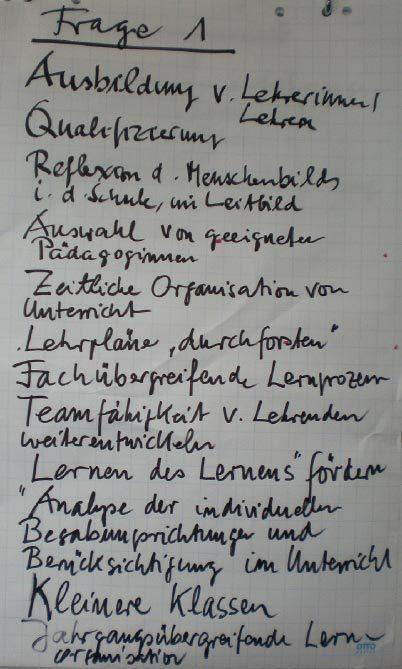 Frage 1
Ausbildung v. Lehrerinnen/
Lehrern
Qualifizierung
Reflexion d. Menschenbilds
i. d. Schule, im Leitbild
Auswahl von geeigneten
Pädagoginnen
Zeitliche Organisation von
Unterricht
Lehrpläne „durchforsten"
Fachübergreifende Lernprozesse
Teamfähigkeit v. Lehrenden
weiterentwickeln
„Lernen des Lernens" fördern
"Analyse der individuellen
Begabungsrichtungen und
Berücksichtigung im Unterricht
Kleinere Klassen
Jahrgangsübergreifende Lern-
organisation
OTTO